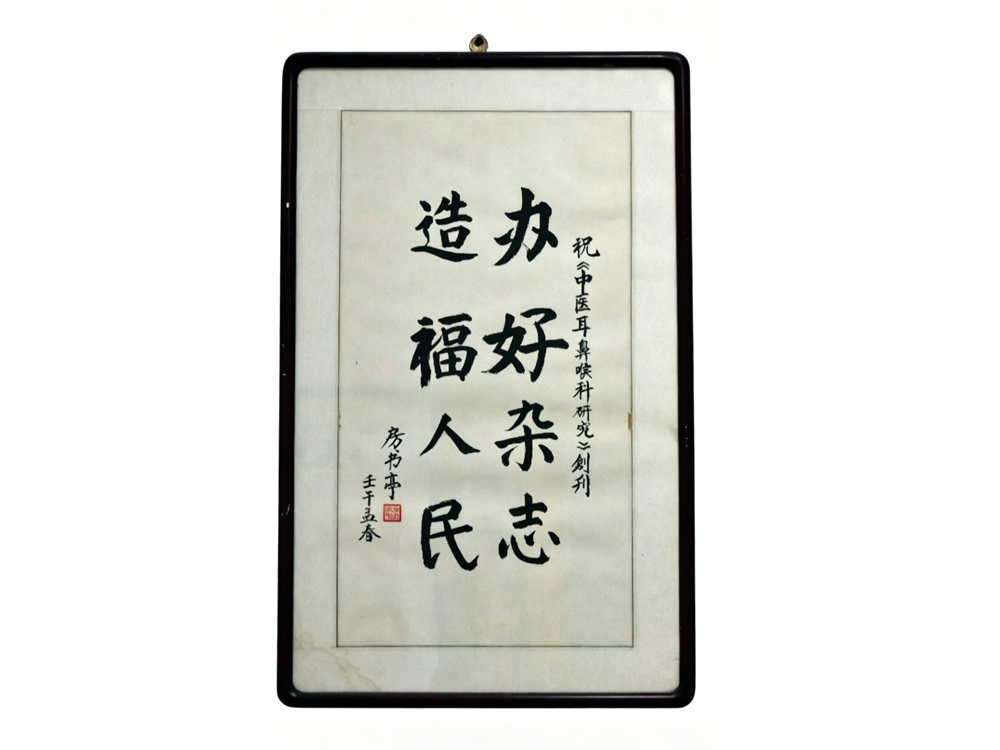 祝《中医耳鼻喉科研究》創刊
办好杂志
造福人民
房书亭
壬午孟春